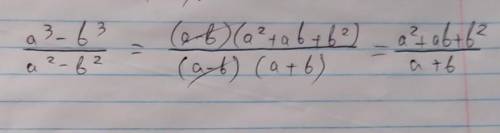 \frac{a^3 - b^3}{a^2 - b^2} = \frac{\cancel{(a-b)}(a^2 + ab + b^2)}{\cancel{(a-b)}(a+b)} = \frac{a^2 + ab + b^2}{a+b}